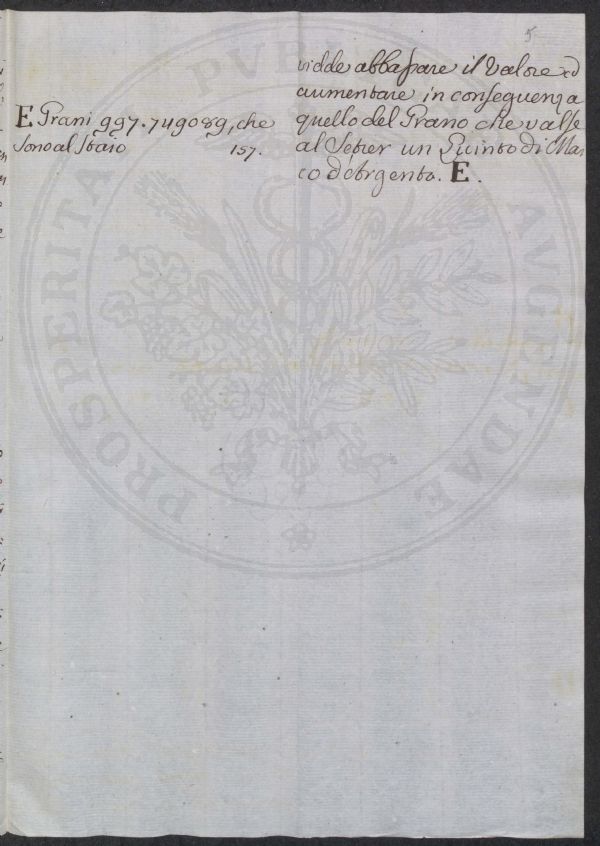 5
vidde abbaſsare il Valore ed
aumentare in conſeguenza
quello del Grano che valſe
al Setier un Quinto di Mar
co d'Argento. E.
E Grani 997. 749089, che
sono al Staio 157.
PROSPERITATI PUBLICAE AVGENDAE